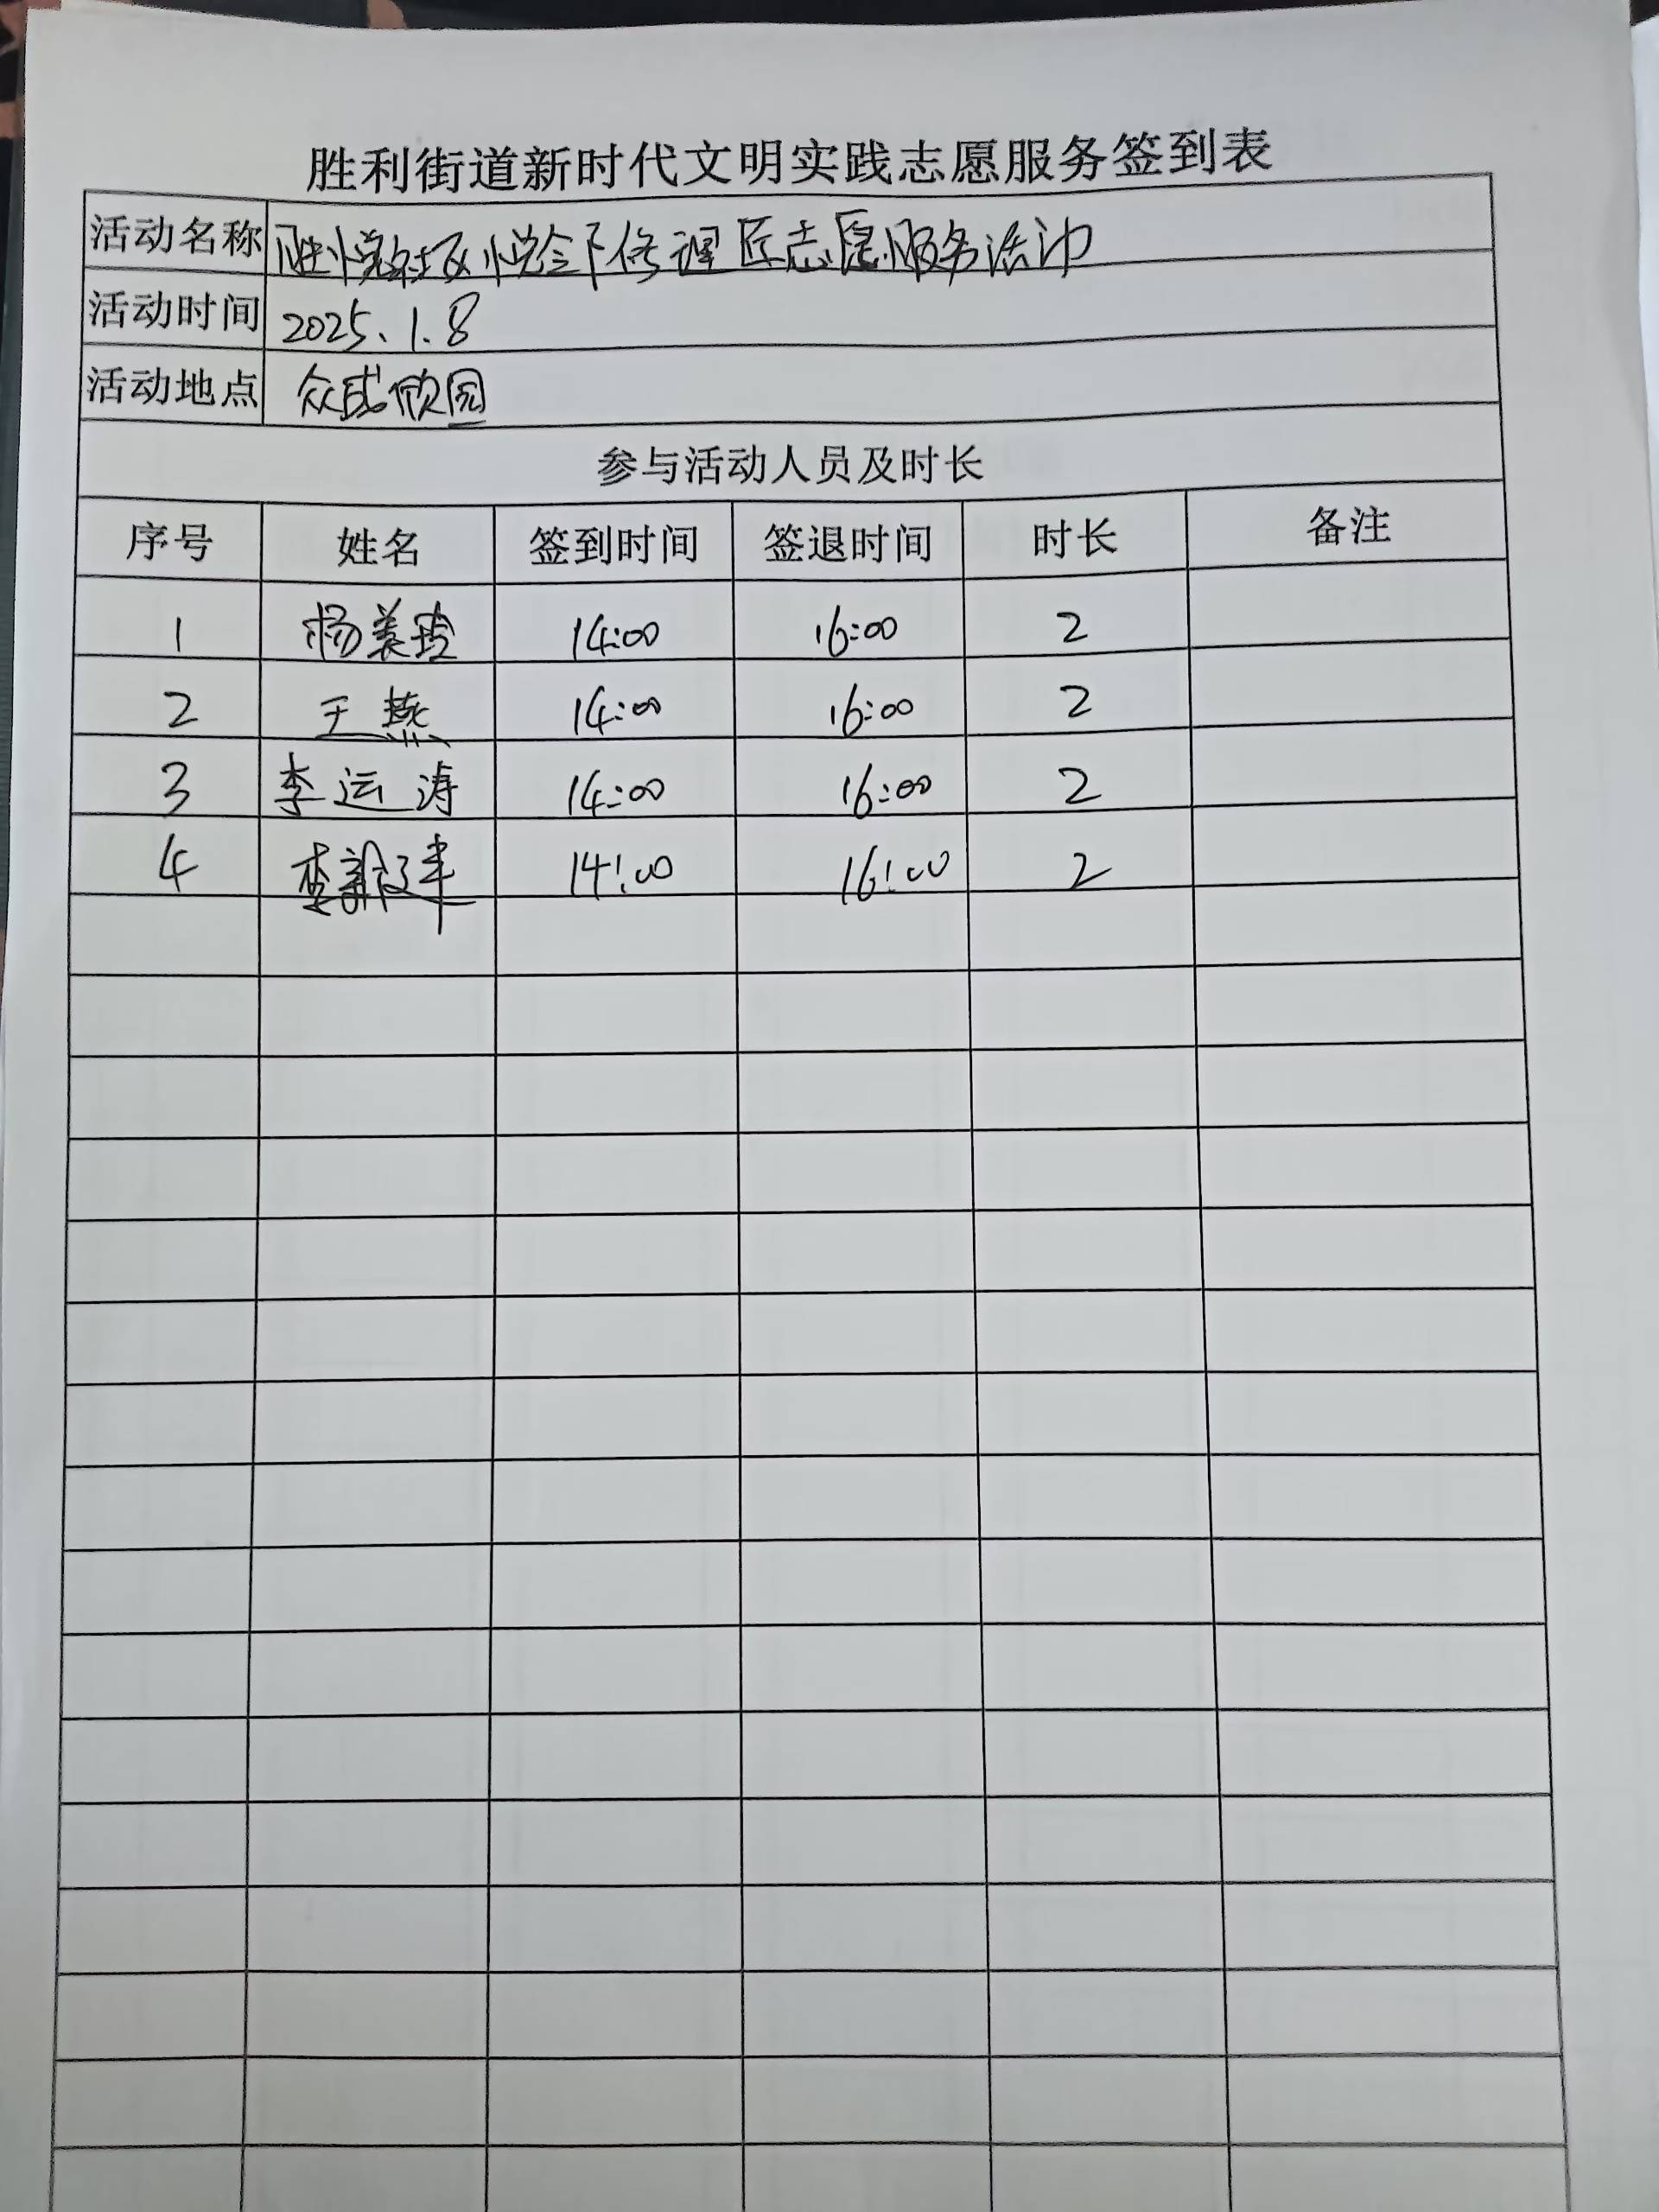 胜利街道新时代文明实践志愿服务签到表
活动名称 胜悦社区悦令下修理匠志愿服务活动
活动时间 2025.1.8
活动地点 众成欣园
参与活动人员及时长
序号 姓名 签到时间 签退时间 时长 备注
1 杨美玲 14:00 16:00 2
2 王燕 14:00 16:00 2
3 李运涛 14:00 16:00 2
4 李 14:00 16:00 2